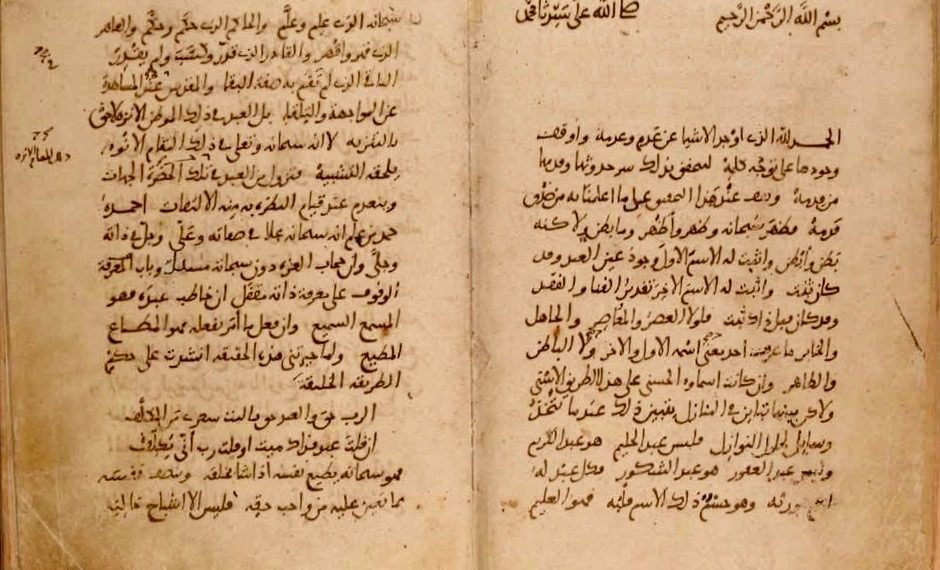 بسم الله الرحمن الرحيم صلى الله على سيدنا محمد
الحمد لله الذي اوجد الاشيا عن عدم وعدمه واوقف
وجودها على توجه كلمه لنحقق بذلك سر حدوثها وقدمها
من قدمه ونقف عند هذا التحقيق على ما اعلمنا به من صدق
قدمه فظهر سبحانه وظهر واظهر وما بطن ولاكنه
بطن وابطن واثبت له الاسم الاول وجود عين العبد وقد
كان ثبت واثبت له الاسم الاخر تقدير الفنا والفقد
وقد كان قبل ذلك ثبت فلولا العصر والمعاصر والجاهل
والخابر ما عرف احد معنى اسمه الاول والاخر ولا الباطن
والظاهر وان كانت اسماوه الحسنى على هذا الطريق الاسنى
ولاكن بينها تباين في المنازل يتبين ذلك عندما تتخذ
وسايل لحلول النوازل فليس عبد الحليم هو عبد الكريم
وليس عبد الغفور هو عبد الشكور فكل عبد له
اسم هو ربه وهو جسم ذلك الاسم قلبه فهو العليم
سبحانه الذي علم وعلم والحاكم الذي حكم وحكم والقاهر
الذي قهر واقهر والقادر الذي قدر وكسب ولم يقدر
الباقي الذي لم تقم به صفة البقا والمقدس عند المشاهدة
عن المواجهة والتلقا بل العبد في ذلك الموطن الانزه لاحق
بالتنزيه لا انه سبحانه وتعلى في ذلك المقام الانوه
يلحقه التشبيه فتزول من العبد في تلك الحضرة الجهات
وينعدم عند قيام النظرة به منه الالتفات احمده
حمد من علم انه سبحانه علا في صفاته وعلى وجل في ذاته
وجلى وان حجاب العزه دون سبحانه مسدل وباب
الوقوف على معرفة ذاته مقفل ان خاطب عبده فهو
المسمع السميع وان فعل ما امر بفعله فهو المطاع
المطيع ولما حيرتني هذه الحقيقه انشدت على حكم
الطريقه للخليقة
الرب حق والعبد حق يا ليت شعري من المكلف
ان قلت عبد فذاك ميت او قلت رب انى يكلف
فهو سبحانه يطيع نفسه اذا شا بخلقه وينصف نفسه
مما تعين عليه من واجب حقه فليس الا اشباح خاليه